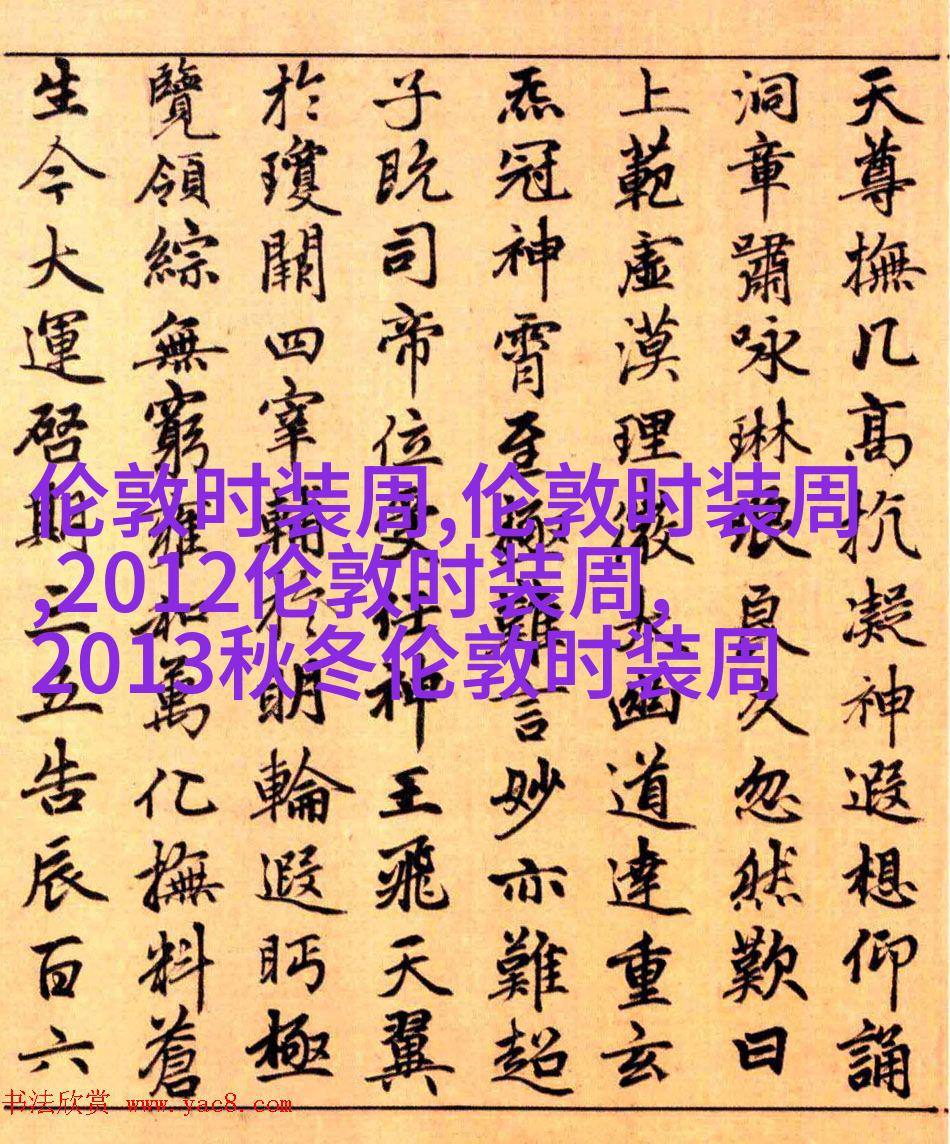 天尊撫几高抗凝神遐想仰誦
洞章嘯咏琳琅良久忽然歎曰
上範虛漠理微太幽道達重玄
炁冠神霄至極難言妙亦難超
子既司帝位受任神王飛天翼
於瓊闕四宰輔於明輪遐眄極
覽領綜無窮雍和萬化撫料蒼
生今大運啓期三五告辰百六
伦敦时装周,伦敦时装周
,2012伦敦时装周,
2013秋冬伦敦时装周
书法欣赏 www.yac8.com